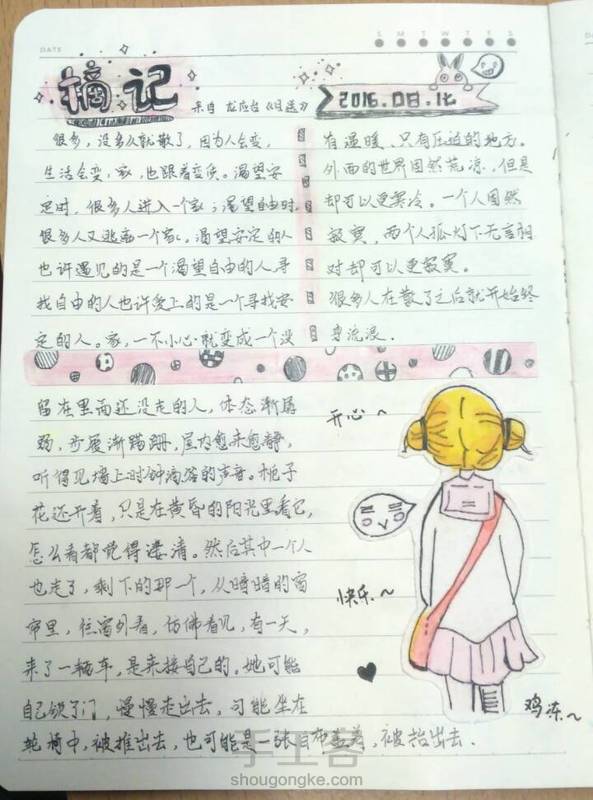 DATE
S M T W T F S
摘记
来自 龙应台《目送》
2016.08.16
很多，没多久就散了，因为人会变，
生活会变，家，也跟着变质。渴望安
定时，很多人进入一个家；渴望自由时，
很多人又逃离一个家。渴望安定的人
也许遇见的是一个渴望自由的人，寻
找自由的人也许爱上的是一个寻找安
定的人。家，一不小心就变成一个没
有温暖、只有压迫的地方。
外面的世界固然荒凉，但是
却可以更寒冷。一个人固然
寂寞，两个人孤灯下无言相
对却可以更寂寞。
很多人在散了之后就开始终
身流浪.
留在里面还没走的人，体态渐孱
弱，步履渐蹒跚，屋内愈来愈静，
听得见墙上时钟滴答的声音。栀子
花还开着，只是在黄昏的阳光里看它，
怎么看都觉得凄清。然后其中一个人
也走了，剩下的那一个，从暗暗的窗
帘里，往窗外看，仿佛看见，有一天，
来了一辆车，是来接自己的。她可能
自己锁了门，慢慢走出去，可能坐在
轮椅中，被推出去，也可能是一张白布盖着，被抬出去.
开心~
快乐~
鸡冻~
手工客
shougongke.com